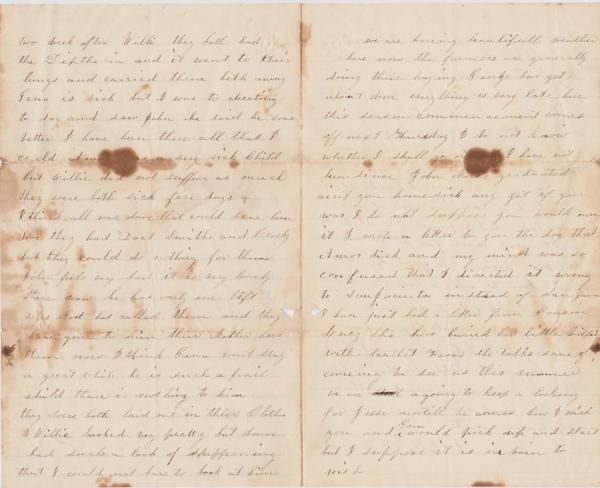 two week after Willie they both had
the Diptheria and it went to their
lungs and carried them both away
Gena is sick but I was to meeting
to day and saw John he said he was
better I have been there all that I
could a very sick Child
but Willie did not suffer as much
they were both sick five days
I think all was done that could have been
done they had Doct Smiths and Crosby
but they could do nothing for them
John feels very bad it is very lonely
there now he has only one left
but God has called them and they
have gone to him their Mother has
them now I think Gena wont stay
a great while he is such a frail
child there is nothing to him
they were both laid out in their Clothes
Willie looked very pretty but
had such a look of suffering
that I could not bare to look at him
we are having beautifull weather
here now the farmers are generally
doing their haying George has got
about done everything is very late here
this season commencement comes
off next Thursday I do not know
whether I shall go I have not
been since John graduated
aint you homesick any yet if you
was I do not suppose you would own
it I wrote a letter to you the day that
Amos died and my mind was so
confused that I directed it wrong
to instead of San
I have just had a letter from
she has buried her little Willie
with Scarlet Fever she talks some of
comeing to see us this summer
we are a going to keep a looking
for Jesse untill he comes how I wish
you and Sam would pick up and start
but I suppose it is in vain to
wish